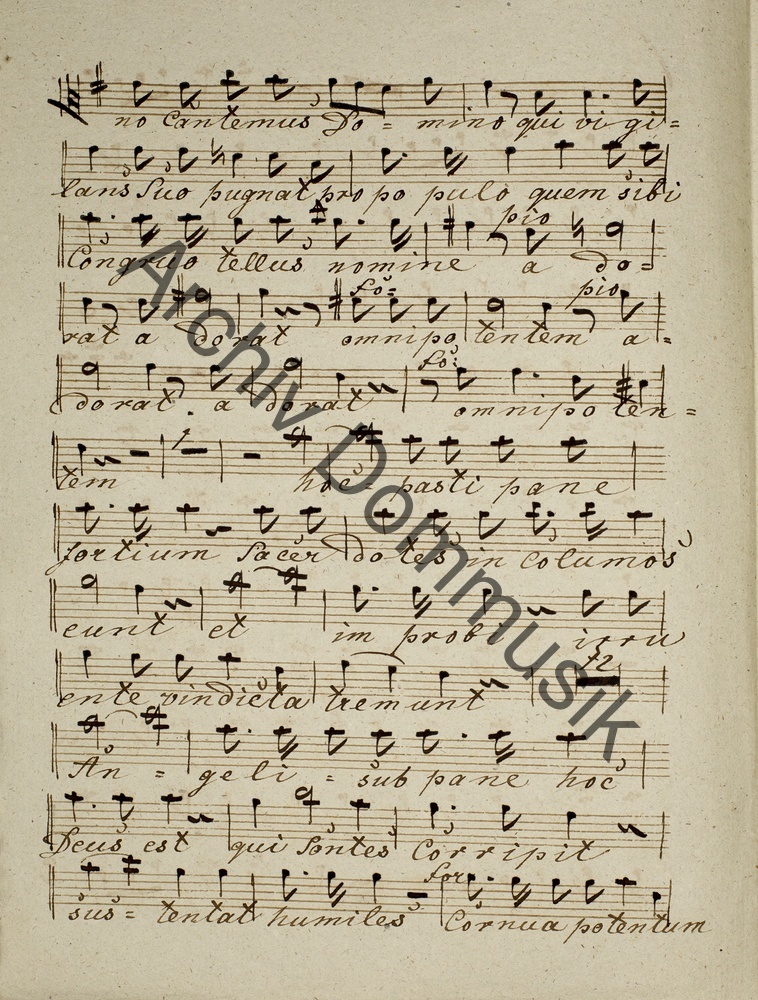 no Cantemus Do = mino qui vi gi =
lans Suo pugnat pro po pulo quem sibi
pio
Congruo tellus nomine a do =
fo = pio
rat a dorat omnipo tentem a =
fo:
dorat. a dorat omnipo ten =
1
tem hoc = pasti pane
fortium Sacer dotes in columos
eunt et im probi irru
12
ente vindicta tremunt
An = geli = sub pane hoc
Deus est qui Sontes Corripit
for
sus = tentat humiles Cornua potentum
Archiv Dommusik